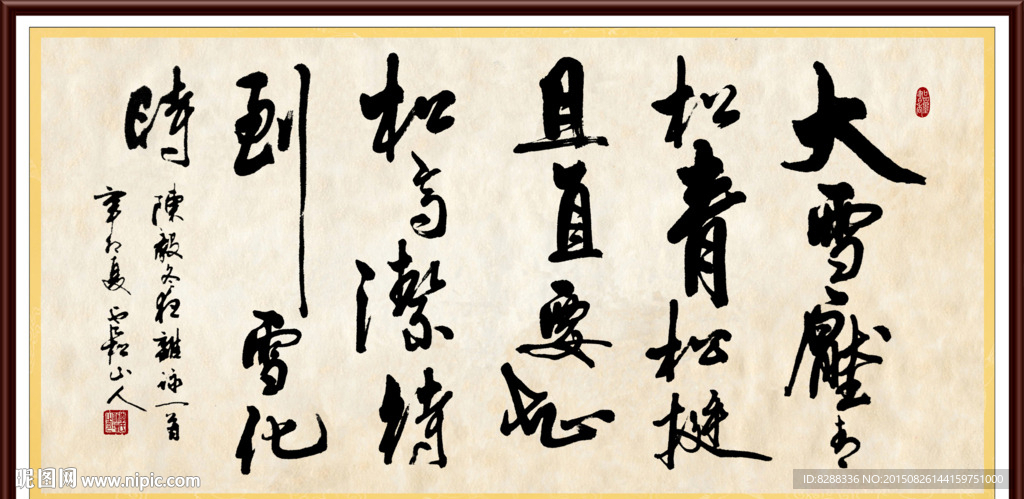 大雪壓青
松青松挺
且直要知
松高潔待
到雪化
時
陳毅冬夜雜詠一首
辛卯夏 山人
昵图网 www.nipic.com
ID:8288336 NO:20150826144159751000